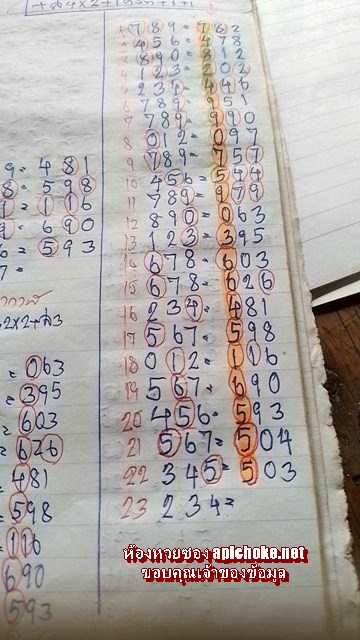 789 = 782
456 = 478
890 = 812
123 = 202
234 = 446
6 789 = 951
7 789 = 990
8 012 = 097
9 789 = 757
10 456 = 544
11 789 = 979
12 890 = 063
13 123 = 395
14 678 = 603
15 678 = 626
16 234 = 481
17 567 = 598
18 012 = 116
19 567 = 690
20 456 = 593
21 567 = 504
22 345 = 503
23 234 =
9 = 481
8 = 598
= 116
= 690
6 = 593
7 =
= 063
= 395
= 603
= 626
= 481
= 598
= 116
690
593
ห้องหวยซอง apichoke.net
ขอบคุณเจ้าของข้อมูล